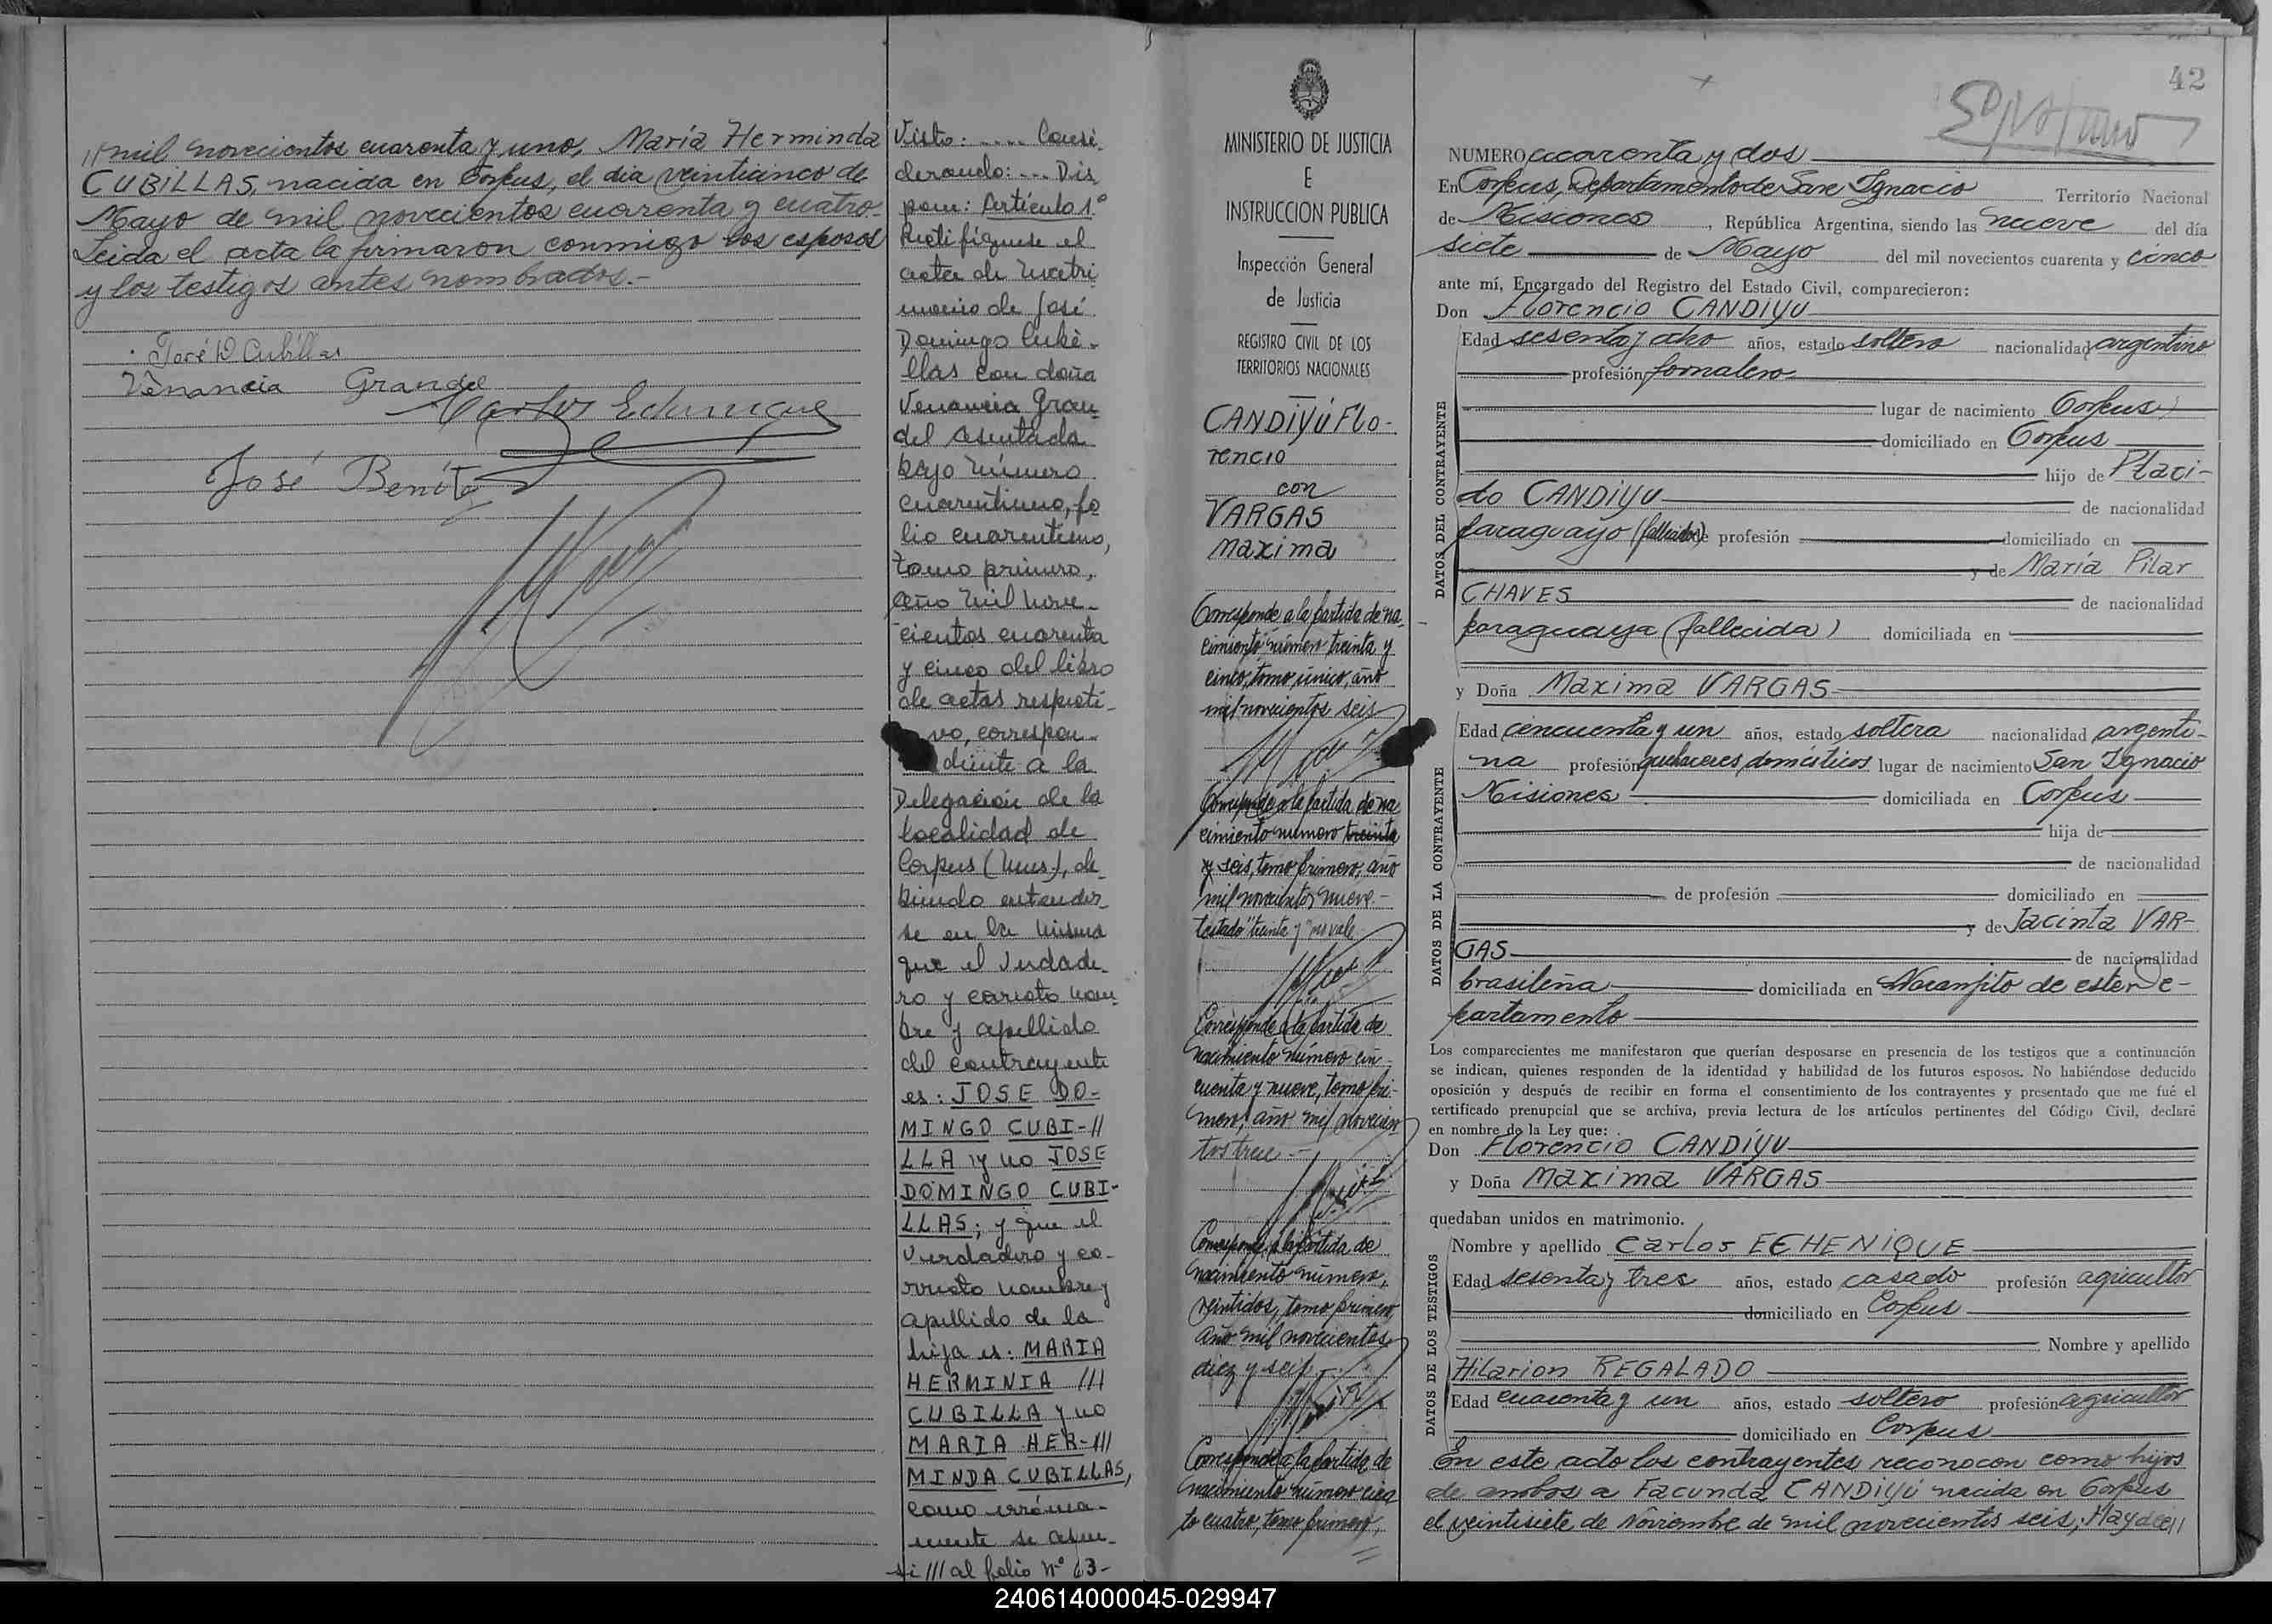 // mil novecientos cuarenta y uno, María Herminda
CUBILLAS, nacida en Corpus, el día veinticinco de
Mayo de mil novecientos cuarenta y cuatro.-
Leida el acta la firmaron conmigo los esposos
y los testigos antes nombrados.-
José D Cubillas
Venancia Grandel
Carlos Echenique
José Benítez
Visto: ..... Consi-
derando: ... Dis-
pone: Artículo 1º
Rectifíquese el
acta de matri
monio de José
Domingo Cubi-
llas con doña
Venancia Gran-
del asentada
bajo número
cuarentiuno, fo
lio cuarentiuno,
tomo primero,
año mil nove-
cientos cuarenta
y cinco del libro
de actas respecti-
vo, correspon-
diente a la
Delegación de la
localidad de
Corpus (Mnes.), de-
biendo entender-
se en la misma
que el verdade-
ro y correcto nom-
bre y apellido
del contrayente
es: JOSE DO-
MINGO CUBI-//
LLA y no JOSE
DOMINGO CUBI-
LLAS; y que el
verdadero y co-
rrecto nombre y
apellido de la
hija es: MARIA
HERMINIA ///
CUBILLA y no
MARIA HER-///
MINDA CUBILLAS,
como errónea-
mente se asen-
ti /// al folio Nº 63-
MINISTERIO DE JUSTICIA
E
INSTRUCCION PUBLICA
Inspección General
de Justicia
REGISTRO CIVIL DE LOS
TERRITORIOS NACIONALES
CANDIYÚ FLO-
rencio
con
VARGAS
Maxima
Corresponde a la partida de na-
cimiento número treinta y
cinco, tomo único, año
mil novecientos seis
Corresponde a la partida de na
cimiento número treinta
y seis, tomo primero, año
mil novecientos nueve.-
testado "treinta y" no vale
Corresponde a la partida de
nacimiento número cin-
cuenta y nueve, tomo pri-
mero, año mil novecien
tos trece.-
Corresponde a la partida de
nacimiento número,
veintidos, tomo primero,
año mil novecientos
diez y seis.-
Corresponde a la partida de
nacimiento número cien
to cuatro, tomo primero,
42
NUMERO cuarenta y dos
En Corpus, Departamento de San Ignacio Territorio Nacional
de Misiones, República Argentina, siendo las nueve del día
siete de Mayo del mil novecientos cuarenta y cinco
ante mí, Encargado del Registro del Estado Civil, comparecieron:
Don Florencio CANDIYU
DATOS DEL CONTRAYENTE
Edad sesenta y ocho años, estado soltero nacionalidad argentino
profesión jornalero
lugar de nacimiento Corpus
domiciliado en Corpus
hijo de Placi-
do CANDIYU de nacionalidad
paraguayo (fallecido) de profesión domiciliado en
y de María Pilar
CHAVES de nacionalidad
paraguaya (fallecida) domiciliada en
y Doña Maxima VARGAS
DATOS DE LA CONTRAYENTE
Edad cincuenta y un años, estado soltera nacionalidad argenti-
na profesión quehaceres domésticos lugar de nacimiento San Ignacio
Misiones domiciliada en Corpus
hija de
de nacionalidad
de profesión domiciliado en
y de Jacinta VAR-
GAS de nacionalidad
brasileña domiciliada en Ñacanguito de este De-
partamento
Los comparecientes me manifestaron que querían desposarse en presencia de los testigos que a continuación
se indican, quienes responden de la identidad y habilidad de los futuros esposos. No habiéndose deducido
oposición y después de recibir en forma el consentimiento de los contrayentes y presentado que me fué el
certificado prenupcial que se archiva, previa lectura de los artículos pertinentes del Código Civil, declaré
en nombre de la Ley que:
Don Florencio CANDÍYU
y Doña Maxima VARGAS
quedaban unidos en matrimonio.
DATOS DE LOS TESTIGOS
Nombre y apellido Carlos ECHENIQUE
Edad sesenta y tres años, estado casado profesión agricultor
domiciliado en Corpus
Nombre y apellido
Hilarion REGALADO
Edad cuarenta y un años, estado soltero profesión agricultor
domiciliado en Corpus
En este acto los contrayentes reconocen como hijos
de ambos a Facunda CANDIYÚ nacida en Corpus
el veintisiete de Noviembre de mil novecientos seis; Haydee//
240614000045-029947